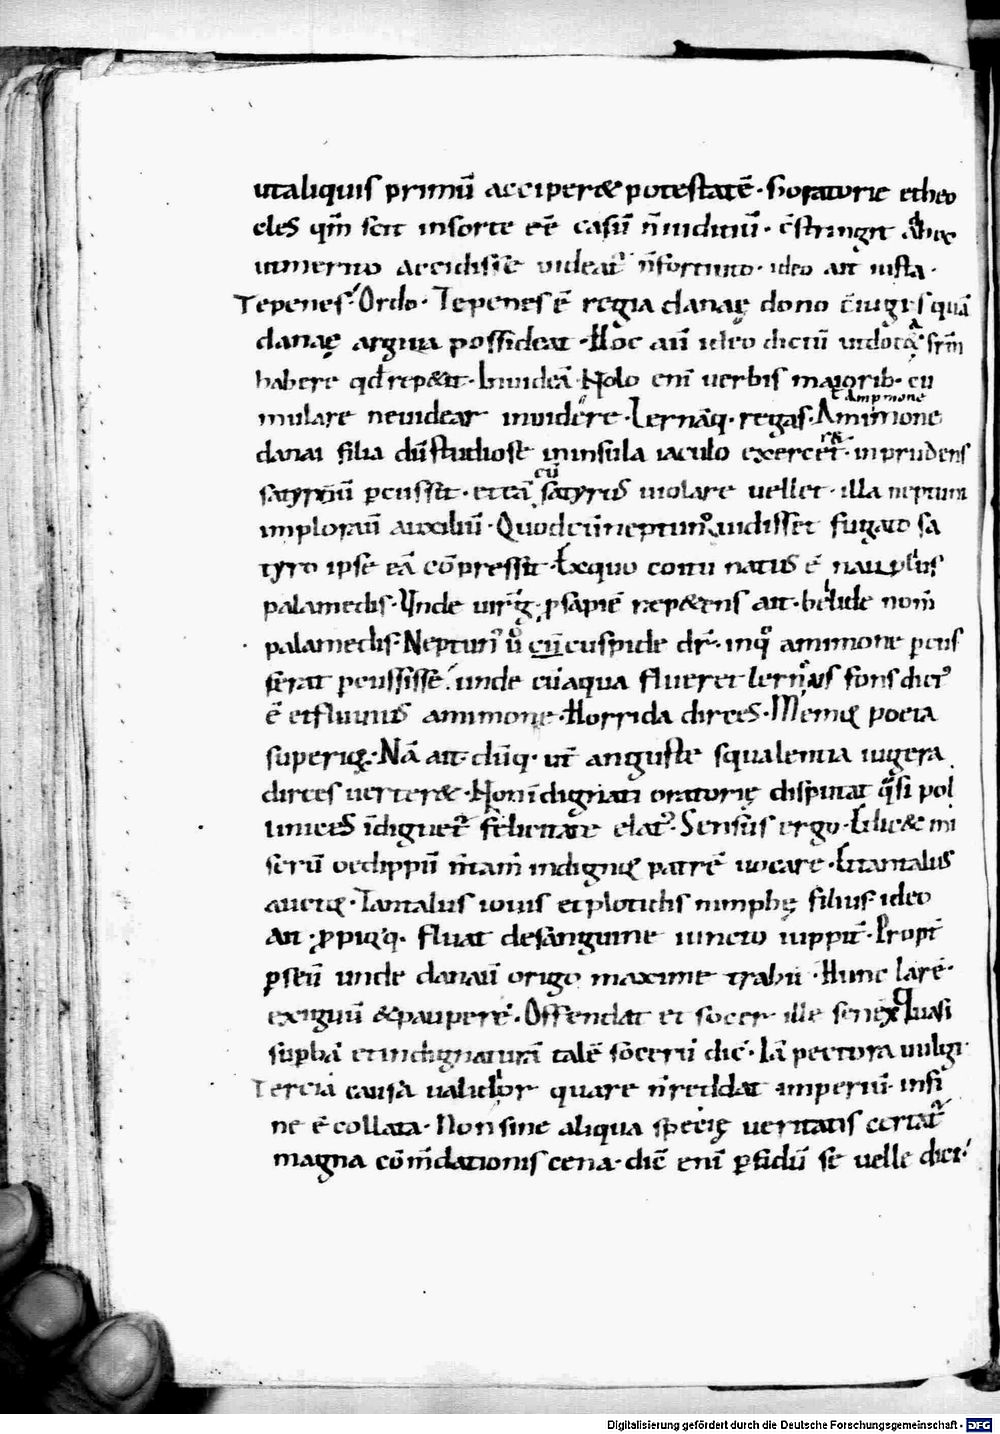 utaliquis primū acciper& potestatē · S; oratorie etheo
cles qm̄ scit insorte eē casū n̄ iuditiū · c̄stringit
inmerito accidisse videat᷑ n̄ fortuito · ideo ait iusta ·
Tepenes · Ordo · Tepenes ē regia danaę dono c̄iugis quā
danaę argiua possideat · Hoc aū ideo dictū
habere qđ rep&it · Inuideā · Nolo eni uerbis maiorib · cu
mulare neuidear inuidere · Lernāq · regas · Amimone
Ampmone
danai filia dū studiose ininsula iaculo exercet᷑ · inprudens
r&
satyrū ꝑcussit · et eā satyrus uiolare uellet · illa neptuni
cū
implorauī auxiliū · Quod cū neptunꝰ uidisset fugato sa
tyro ipse eā cōpressit · Exquo coitu natus ē nauplius
palamedis · Unde uirḡ · ꝑ sapiē rep&ens ait · belide nom̄
palamedis · Neptunꝰ ů cū cuspide dr̄ · inqͦ amimone ꝑcus
serat ꝑcussisse · unde cū aqua flueret lernęus fons dictꝰ
ē et fluuius amimone · Horrida dirces · poeta
superiꝰ · Nā ait · dūq · ut̄ anguste squalentia iugera
dirces uerter& · Non īdignati oratorię disputat q̄si pol
linices īdignet᷑ felicitate elatꝰ · Sensus ergo · Elic& mi
serū oedippū indignꝰ patrē uocare · Et tantalus
auctꝰ · Tantalus iouis et plotidis nimphę filius ideo
ait · ꝓpiꝰq · fluat desanguine iuncto iuppit̄ · Propt̄
ꝑseū unde danaū origo maxime trahit̄ · Hunc larē ·
exiguū &pauperē · Offendat et socer ille senex Quasi
suꝑbā et indignaturā talē socerū dic̄ · Iā pectora uulgi
Tercia causa ualidior quare n̄ reddat imperiū · insi
ne ē collata · Non sine aliqua specię ueritatis certat᷑
magna cōm̄dationis cena · dic̄ enī ꝑfidū se uelle dici ·
Digitalisierung gefördert durch die Deutsche Forschungsgemeinschaft - DFG